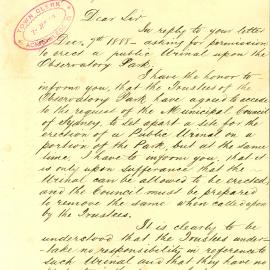 TOWN CLERK
Dear Sir
In reply to your letter
Dec. 7th 1888 - asking for permission
to erect a public Urinal upon the
Observatory Park.
I have the honor to
inform you, that the Trustees of the
Observatory Park have agreed to accede
to the request of the Municipal Council
of Sydney, to set apart a site for the
erection of a Public Urinal on a
portion of the Park, but at the same
time, I have to inform you, that it
is only upon sufferance that the
Urinal can be allowed to be erected,
and the Council must be prepared
to remove the same when called upon
by the Trustees.
It is clearly to be
understood that the Trustees under-
-take no responsibility in reference to
such Urinal and that they have no